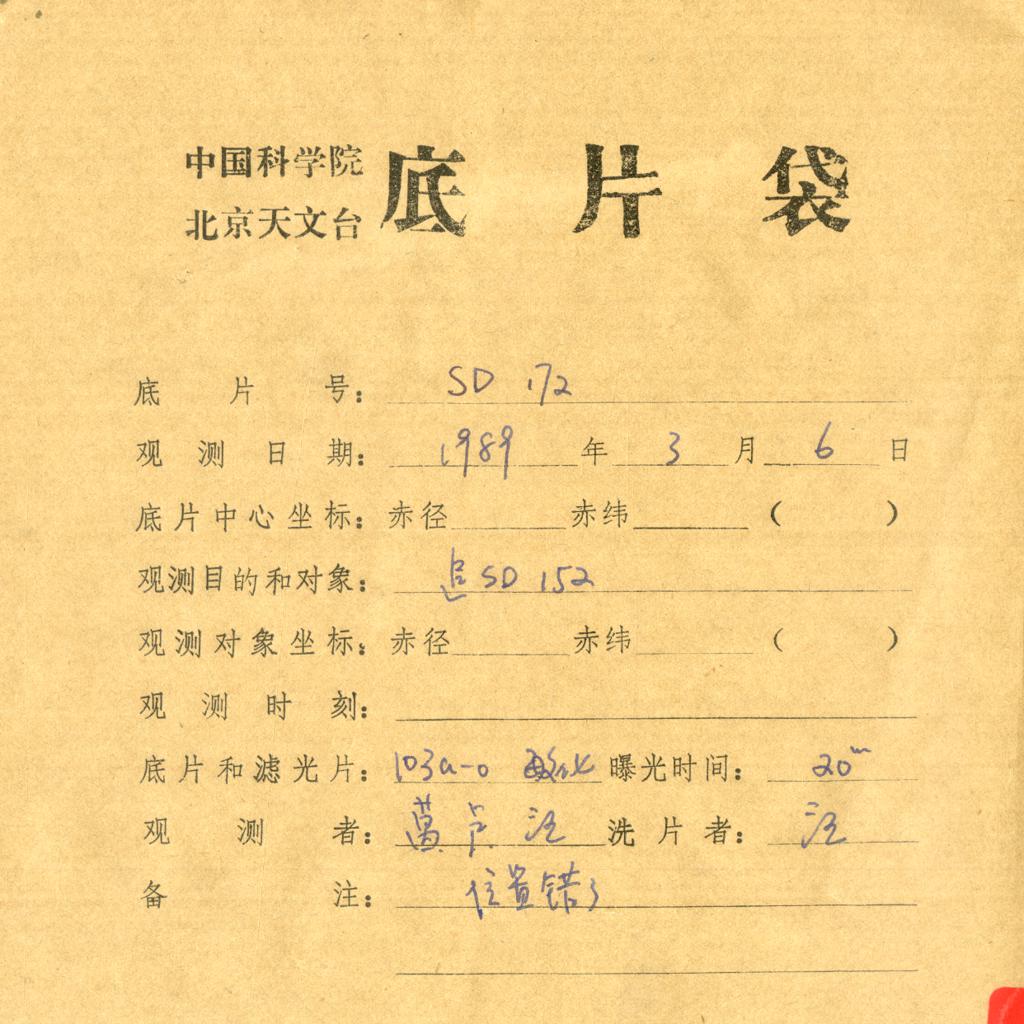 中国科学院
北京天文台
底片袋
底片号: SD 172
观测日期: 1989年3月6日
底片中心坐标: 赤径 赤纬 ( )
观测目的和对象: 追SD 152
观测对象坐标: 赤径 赤纬 ( )
观测时刻:
底片和滤光片: 103a-o 敏化 曝光时间: 20m
观测者: 卢 汪 洗片者: 汪
备注: 位置错了